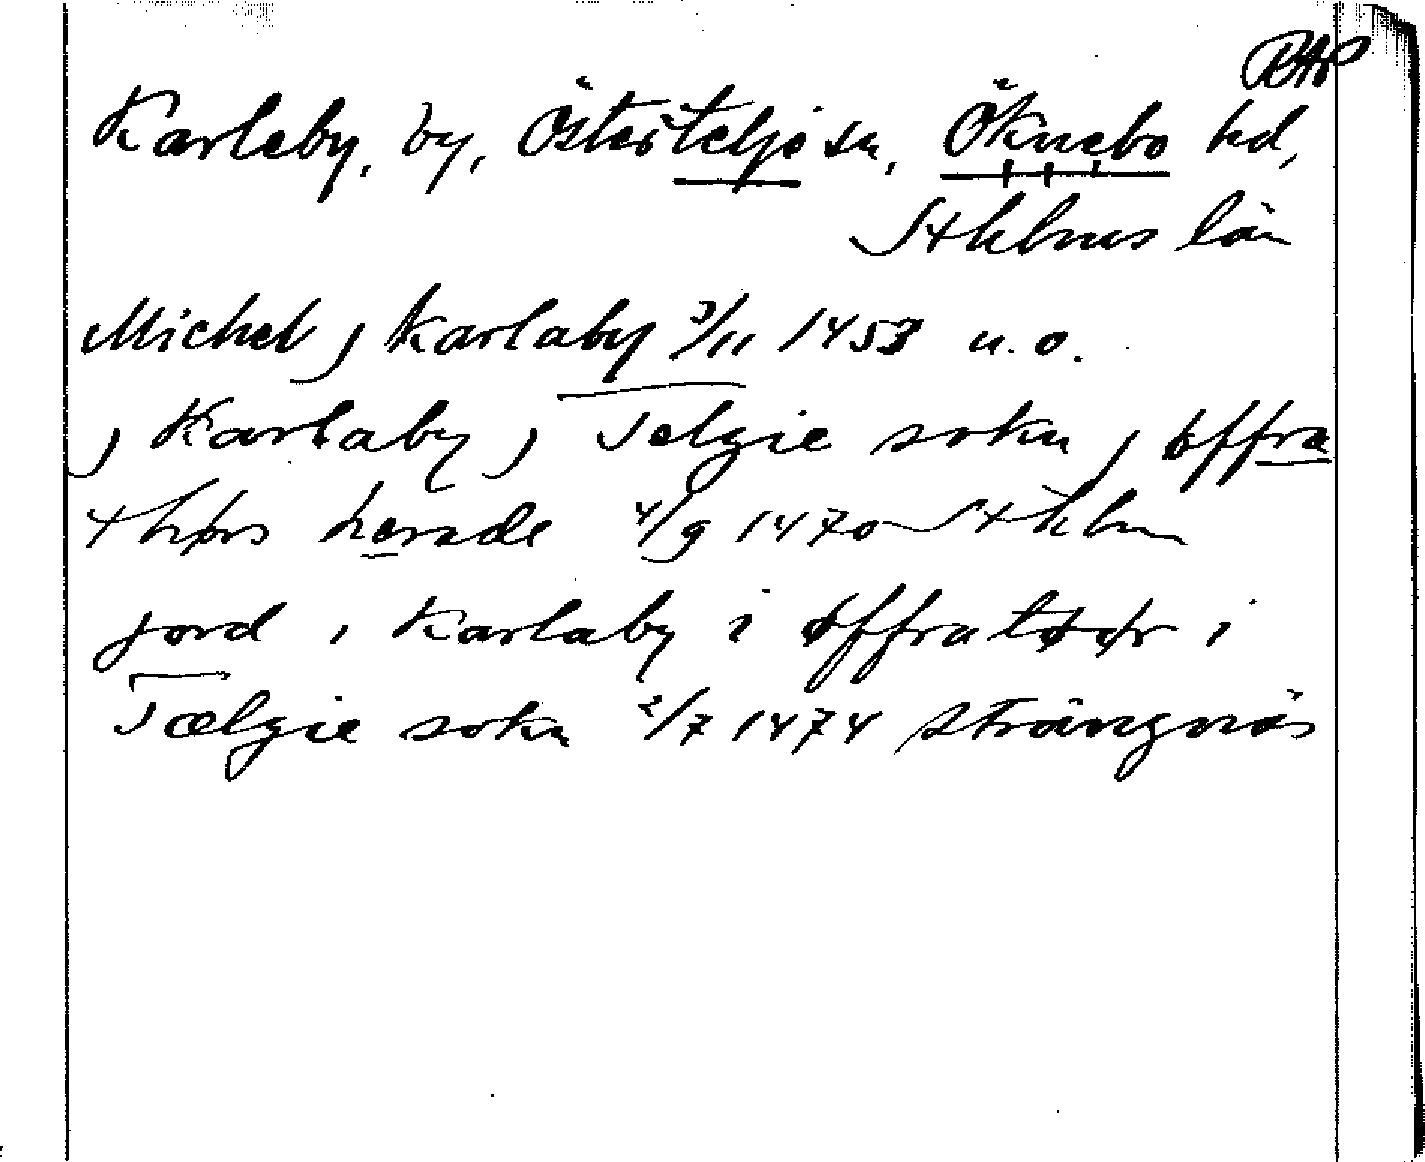 RAP
Karleby, by, Östertelje sn, Öknebo hd,
Sthlms län
Michel j Karlaby 3/11 1453 u.o.
j Karlaby j Telgie sokn j øffra
thørs herade 4/9 1470 Sthlm
jord i Karlaby i øffratørør i
Tælgie sokn 2/7 1474 Strängnäs